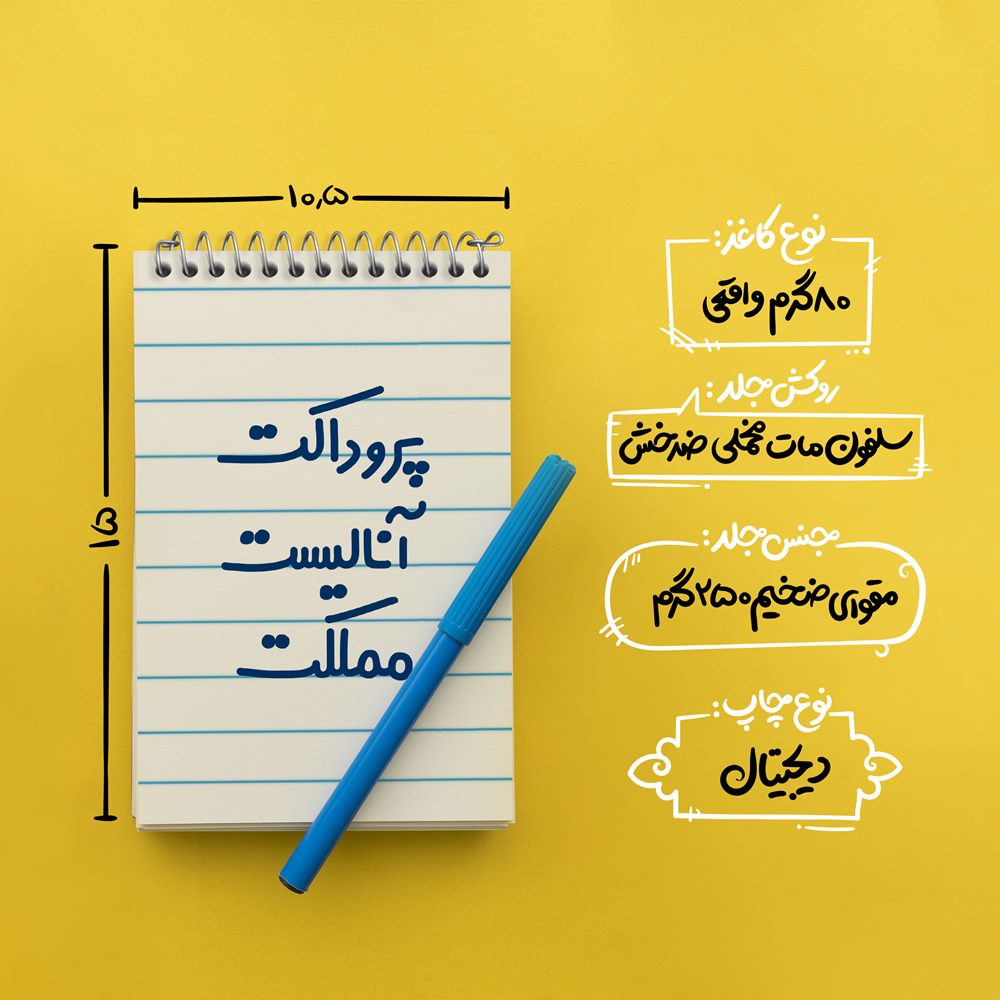 ۱۰٫۵
۱۵
پروداکت
آنالیست
مملکت
نوع کاغذ:
۸۰گرم واقعی
روکش جلد:
سلفون مات مخملی ضدخش
جنس جلد:
مقوای ضخیم ۲۵۰گرم
نوع چاپ:
دیجیتال